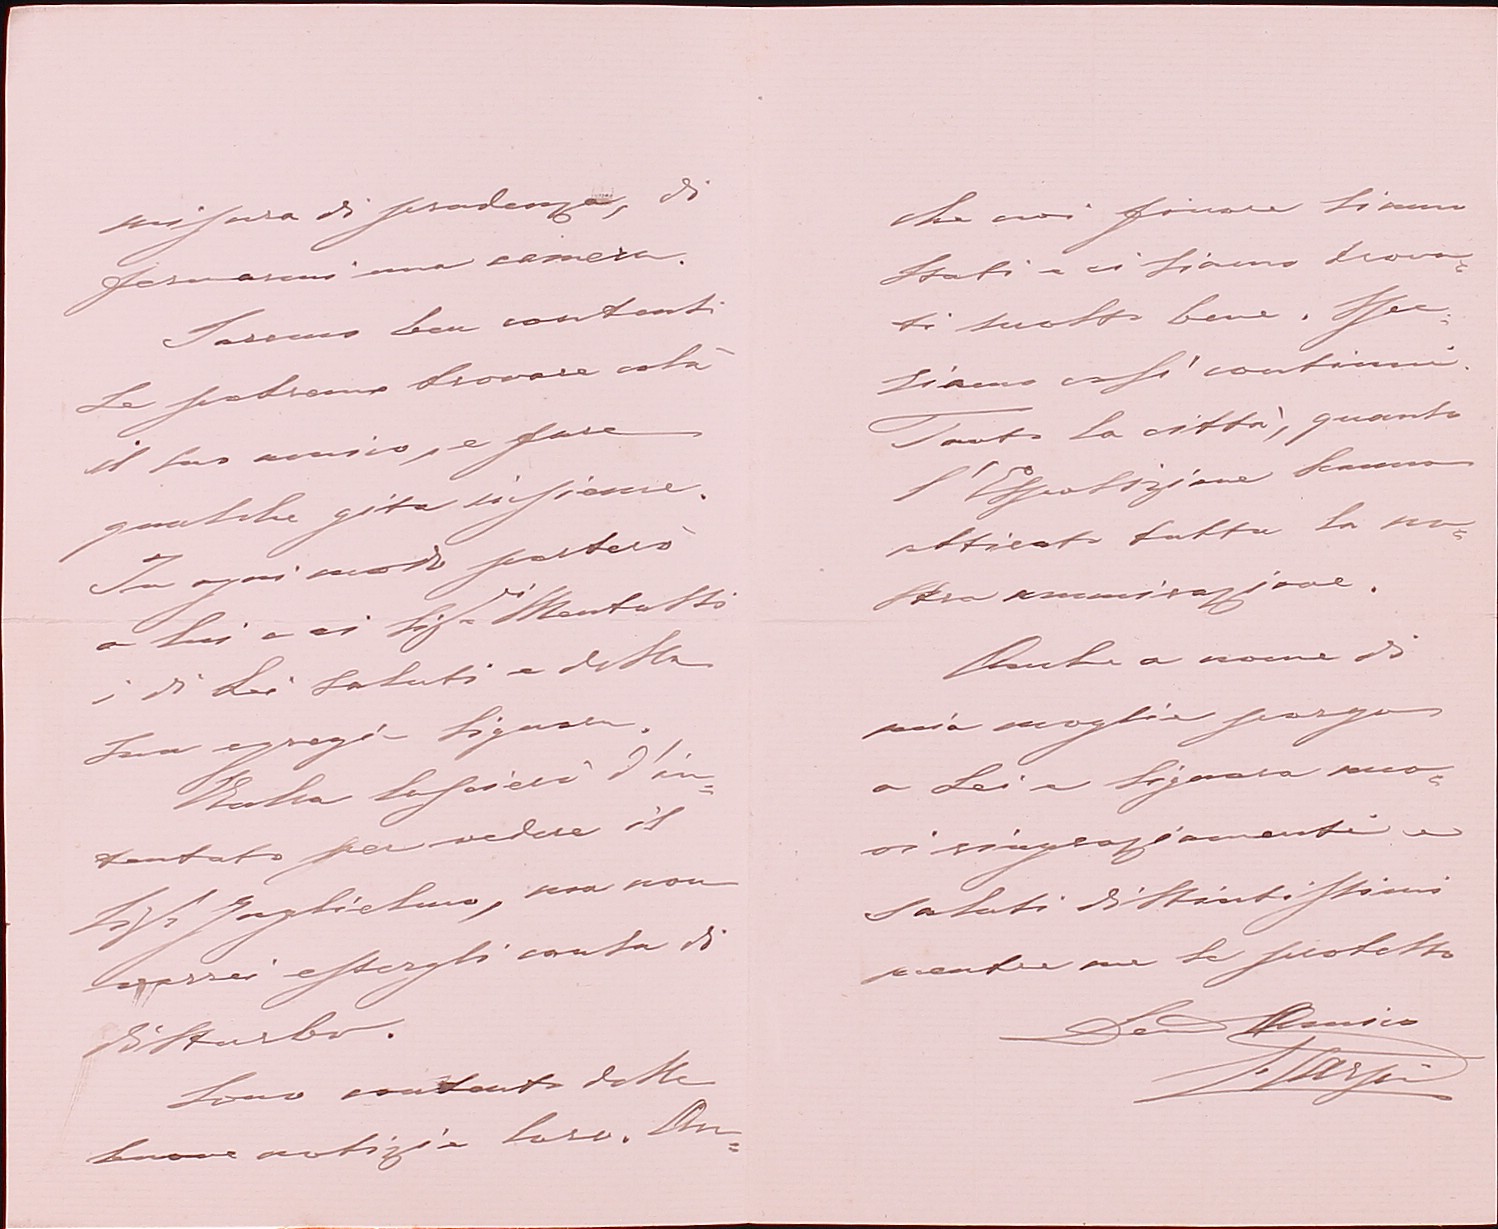 misura di prudenza, di
fermarmi una camera.
Saremo ben contenti
se potremo trovare colà
il suo amico, e fare
qualche gita insieme.
In ogni modo porterò
a lui e ai Sigri
i di Lei saluti e della
sua egregia Signora.
lascierò d'in=
tentato per vedere il
Sigr Guglielmo, ma non
vorrei essergli causa di
disturbo.
Sono contento delle
buone notizie loro. An=
che noi finora siamo
stati e ci siamo trova=
ti molto bene. Spe=
riamo così continui.
Tanto la città, quanto
l'Esposizione hanno
attirato tutta la no=
stra ammirazione.
Anche a nome di
mia moglie porgo
a Lei e Signora nuo=
vi ringraziamenti e
saluti distintissimi
mentre me le protesto
Amico